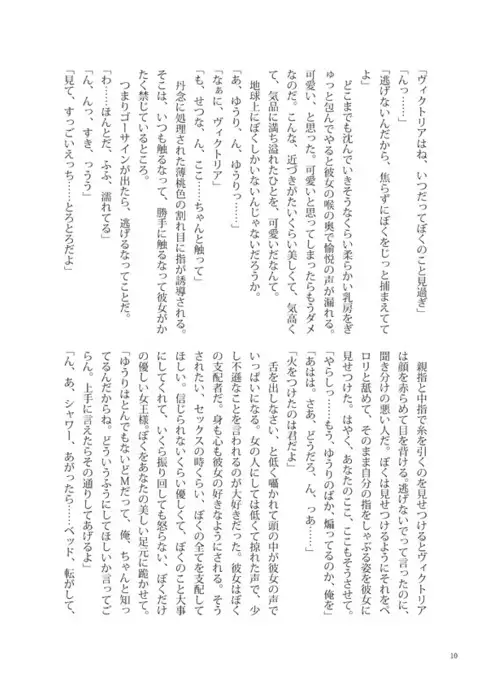 「ヴィクトリアはね、いつだってぼくのこと見過ぎ」
「んっ……」
「逃げないんだから、焦らずにぼくをじっと捕まえてて
よ」
どこまでも沈んでいきそうなくらい柔らかい乳房をぎ
ゅっと包んでやると彼女の喉の奥で愉悦の声が漏れる。
可愛い、と思った。可愛いと思ってしまったらもうダメ
なのだ。こんな、近づきがたいくらい美しくて、気高く
て、気品に満ち溢れたひとを、可愛いだなんて。
地球上にぼくしかいないんじゃないだろうか。
「あ、ゆうり、ん、ゆうりっ……」
「なぁに、ヴィクトリア」
「も、せつな、ん、ここ……ちゃんと触って」
丹念に処理された薄桃色の割れ目に指が誘導される。
そこは、いつも触るなって、勝手に触るなって彼女がか
たく禁じているところ。
つまりゴーサインが出たら、逃げるなってことだ。
「わ……ほんとだ、ふふ、濡れてる」
「ん、んっ、すき、っうう」
「見て、すっごいえっち……とろとろだよ」
親指と中指で糸を引くのを見せつけるとヴィクトリア
は顔を赤らめて目を背ける。逃げないでって言ったのに、
聞き分けの悪い人だ。ぼくは見せつけるようにそれをペ
ロリと舐めて、そのまま自分の指をしゃぶる姿を彼女に
見せつけた。はやく、あなたのここ、ここもそうさせて。
「やらしっ……も、ゆうりのばか、煽ってるのか、俺を」
「あはは。さあ、どうだろ、ん、っあ……」
「火をつけたのは君だよ」
舌を出しなさい、と低く囁かれて頭の中が彼女の声で
いっぱいになる。女の人にしては低くて掠れた声で、少
し不遜なことを言われるのが大好きだった。彼女はぼく
の支配者だ。身も心も彼女の好きなようにされる。そう
されたい、セックスの時くらい、ぼくの全てを支配して
ほしい。信じられないくらい優しくて、ぼくのこと大事
にしてくれて、いくら振り回しても怒らない、ぼくだけ
の優しい女王様。ぼくをあなたの美しい足元に跪かせて。
「ゆうりはとんでもないどMだって、俺、ちゃんと知っ
てるんだからね。どういうふうにしてほしいか言ってご
らん。上手に言えたらその通りしてあげるよ」
「ん、あ、シャワー、あがったら……ベッド、転がして、
10